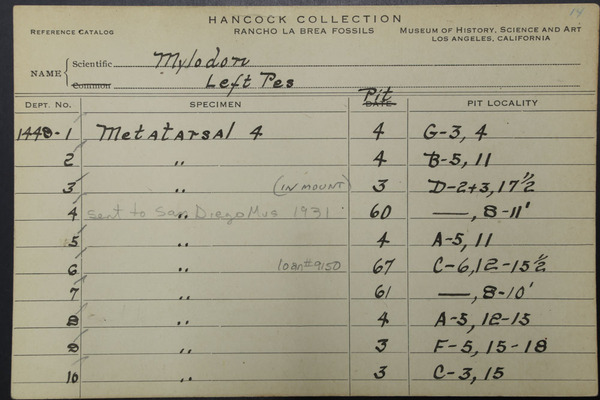 14
HANCOCK COLLECTION
REFERENCE CATALOG RANCHO LA BREA FOSSILS MUSEUM OF HISTORY, SCIENCE AND ART
LOS ANGELES, CALIFORNIA
NAME Scientific Mylodon
Common Left Pes
Pit
DEPT. NO. SPECIMEN DATE PIT LOCALITY
1448-1 Metatarsal 4 4 G-3, 4
2 " 4 B-5, 11
3 " (IN MOUNT) 3 D-2+3, 17 1/2
4 " sent to San Diego Mus 1931 60 —, 8-11'
5 " 4 A-5, 11
6 " loan #9150 67 C-6, 12-15 1/2
7 " 61 —, 8-10'
8 " 4 A-5, 12-15
9 " 3 F-5, 15-18
10 " 3 C-3, 15